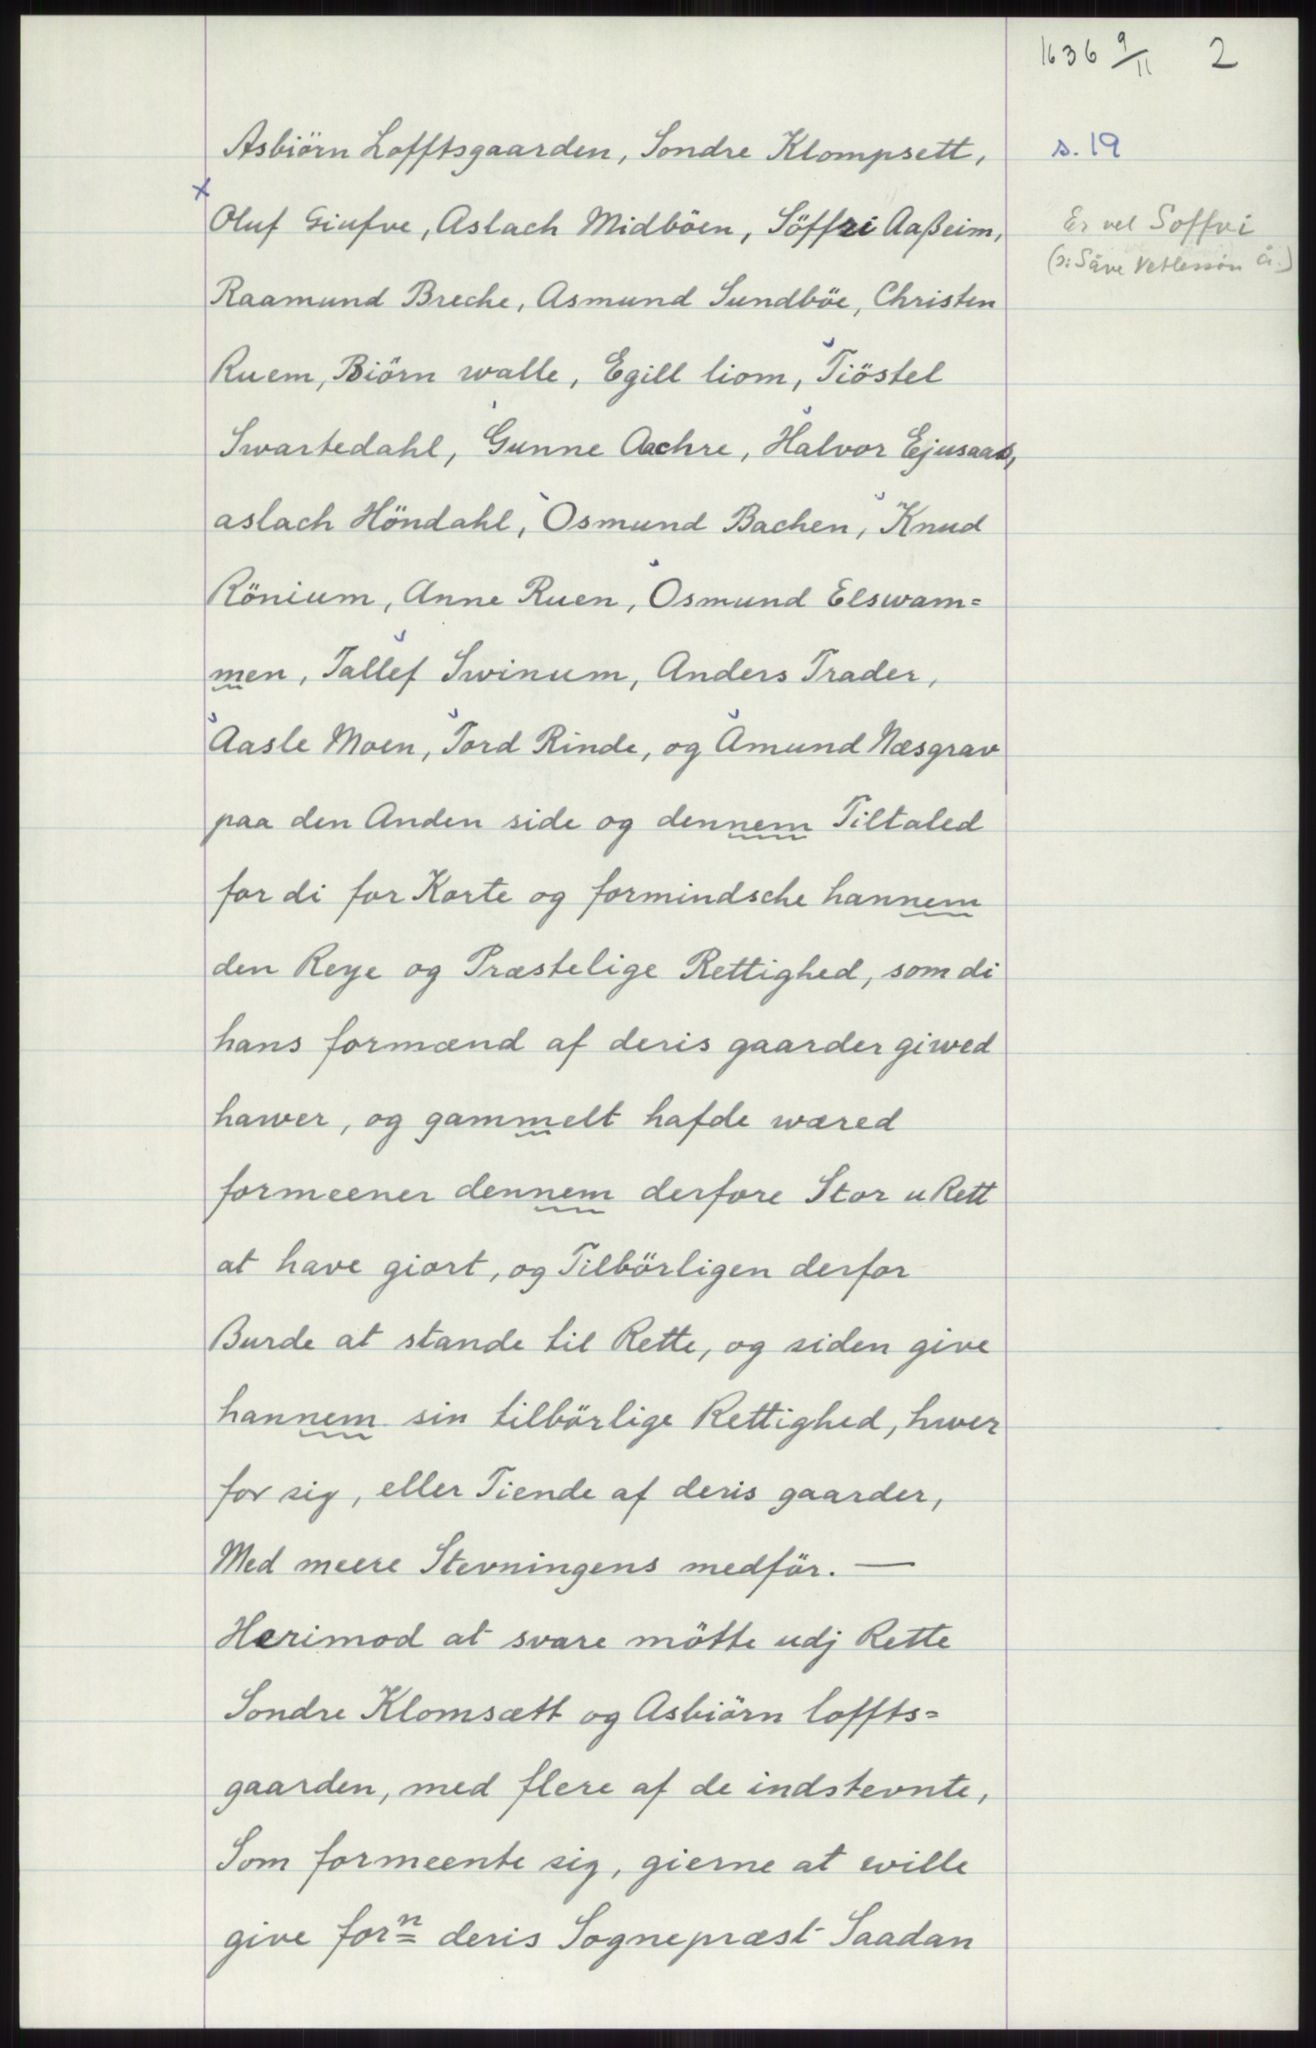 1636 9/11 2
s. 19
Asbiörn Lofftsgaarden, Sondre Klompsett,
x
Oluf Giufve, Aslach Midböen, Söffri Aaßeim,
Er vel Soffvi
(ɔ: Såve Vetlessön Å.)
Raamund Breche, Asmund Sundböe, Christen
Ruem, Biörn walle, Egill liom, Tiöstel
Swartedahl, Gunne Aachre, Halvor Ejusaas,
aslach Höndahl, Osmund Bachen, Knud
Rönium, Anne Ruen, Osmund Elswam=
men, Tallef Swinum, Anders Trader,
Aasle Moen, Tord Rinde, og Amund Næsgrav
paa den Anden side og dennem Tiltaled
for di for Korte og formindsche hannem
den Reye og Præstelige Rettighed, som di
hans formænd af deris gaarder giwed
hawer, og gammelt hafde wæred
formeener dennem derfore Stor u Rett
at have giort, og Tilbörligen derfor
Burde at stande til Rette, og siden give
hannem sin tilbörlige Rettighed, hwer
for sig, eller Tiende af deris gaarder,
Med meere Stevningens medför. —
Herimod at svare mötte udj Rette
Sondre Klomsætt og Asbiörn loffts=
gaarden, med flere af de indstevnte,
Som formeente sig, gierne at wille
give forn deris Sognepræst Saadan